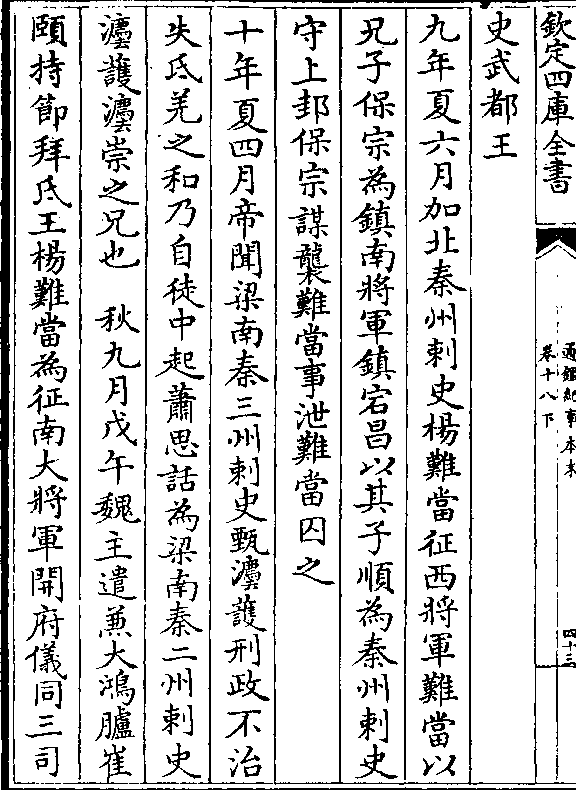 欽定四庫全書
通鑑紀事本末
卷十八下
四十三
史武都王
九年夏六月加北秦州刺史楊難當征西將軍難當以
兄子保宗為鎮南將軍鎮宕昌以其子順為秦州刺史
守上邽保宗謀襲難當事泄難當囚之
十年夏四月帝聞梁南秦三州刺史甄灋護刑政不治
失氐羌之和乃自徒中起蕭思話為梁南秦二州刺史
灋護灋崇之兄也　秋九月戊午魏主遣兼大鴻臚崔
頤持節拜氐王楊難當為征南大將軍開府儀同三司